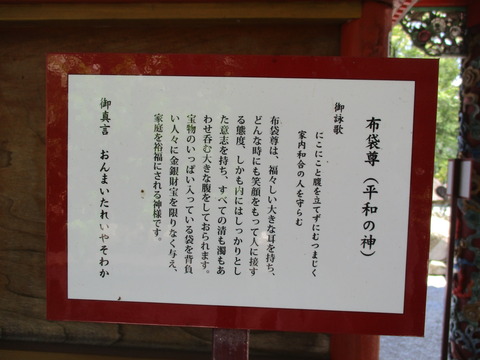 布袋尊（平和の神）
御詠歌
にこにこと腹を立てずにむつまじく
家内和合の人を守らむ
布袋尊は、福々しい大きな耳を持ち、
どんな時にも笑顔をもって人に接す
る態度、しかも内にはしっかりとし
た意志を持ち、すべての清も濁もあ
わせ呑む大きな腹をしておられます。
宝物のいっぱい入っている袋を背負
い人々に金銀財宝を限りなく与え、
家庭を裕福にされる神様です。
御真言　おんまいたれいやそわか